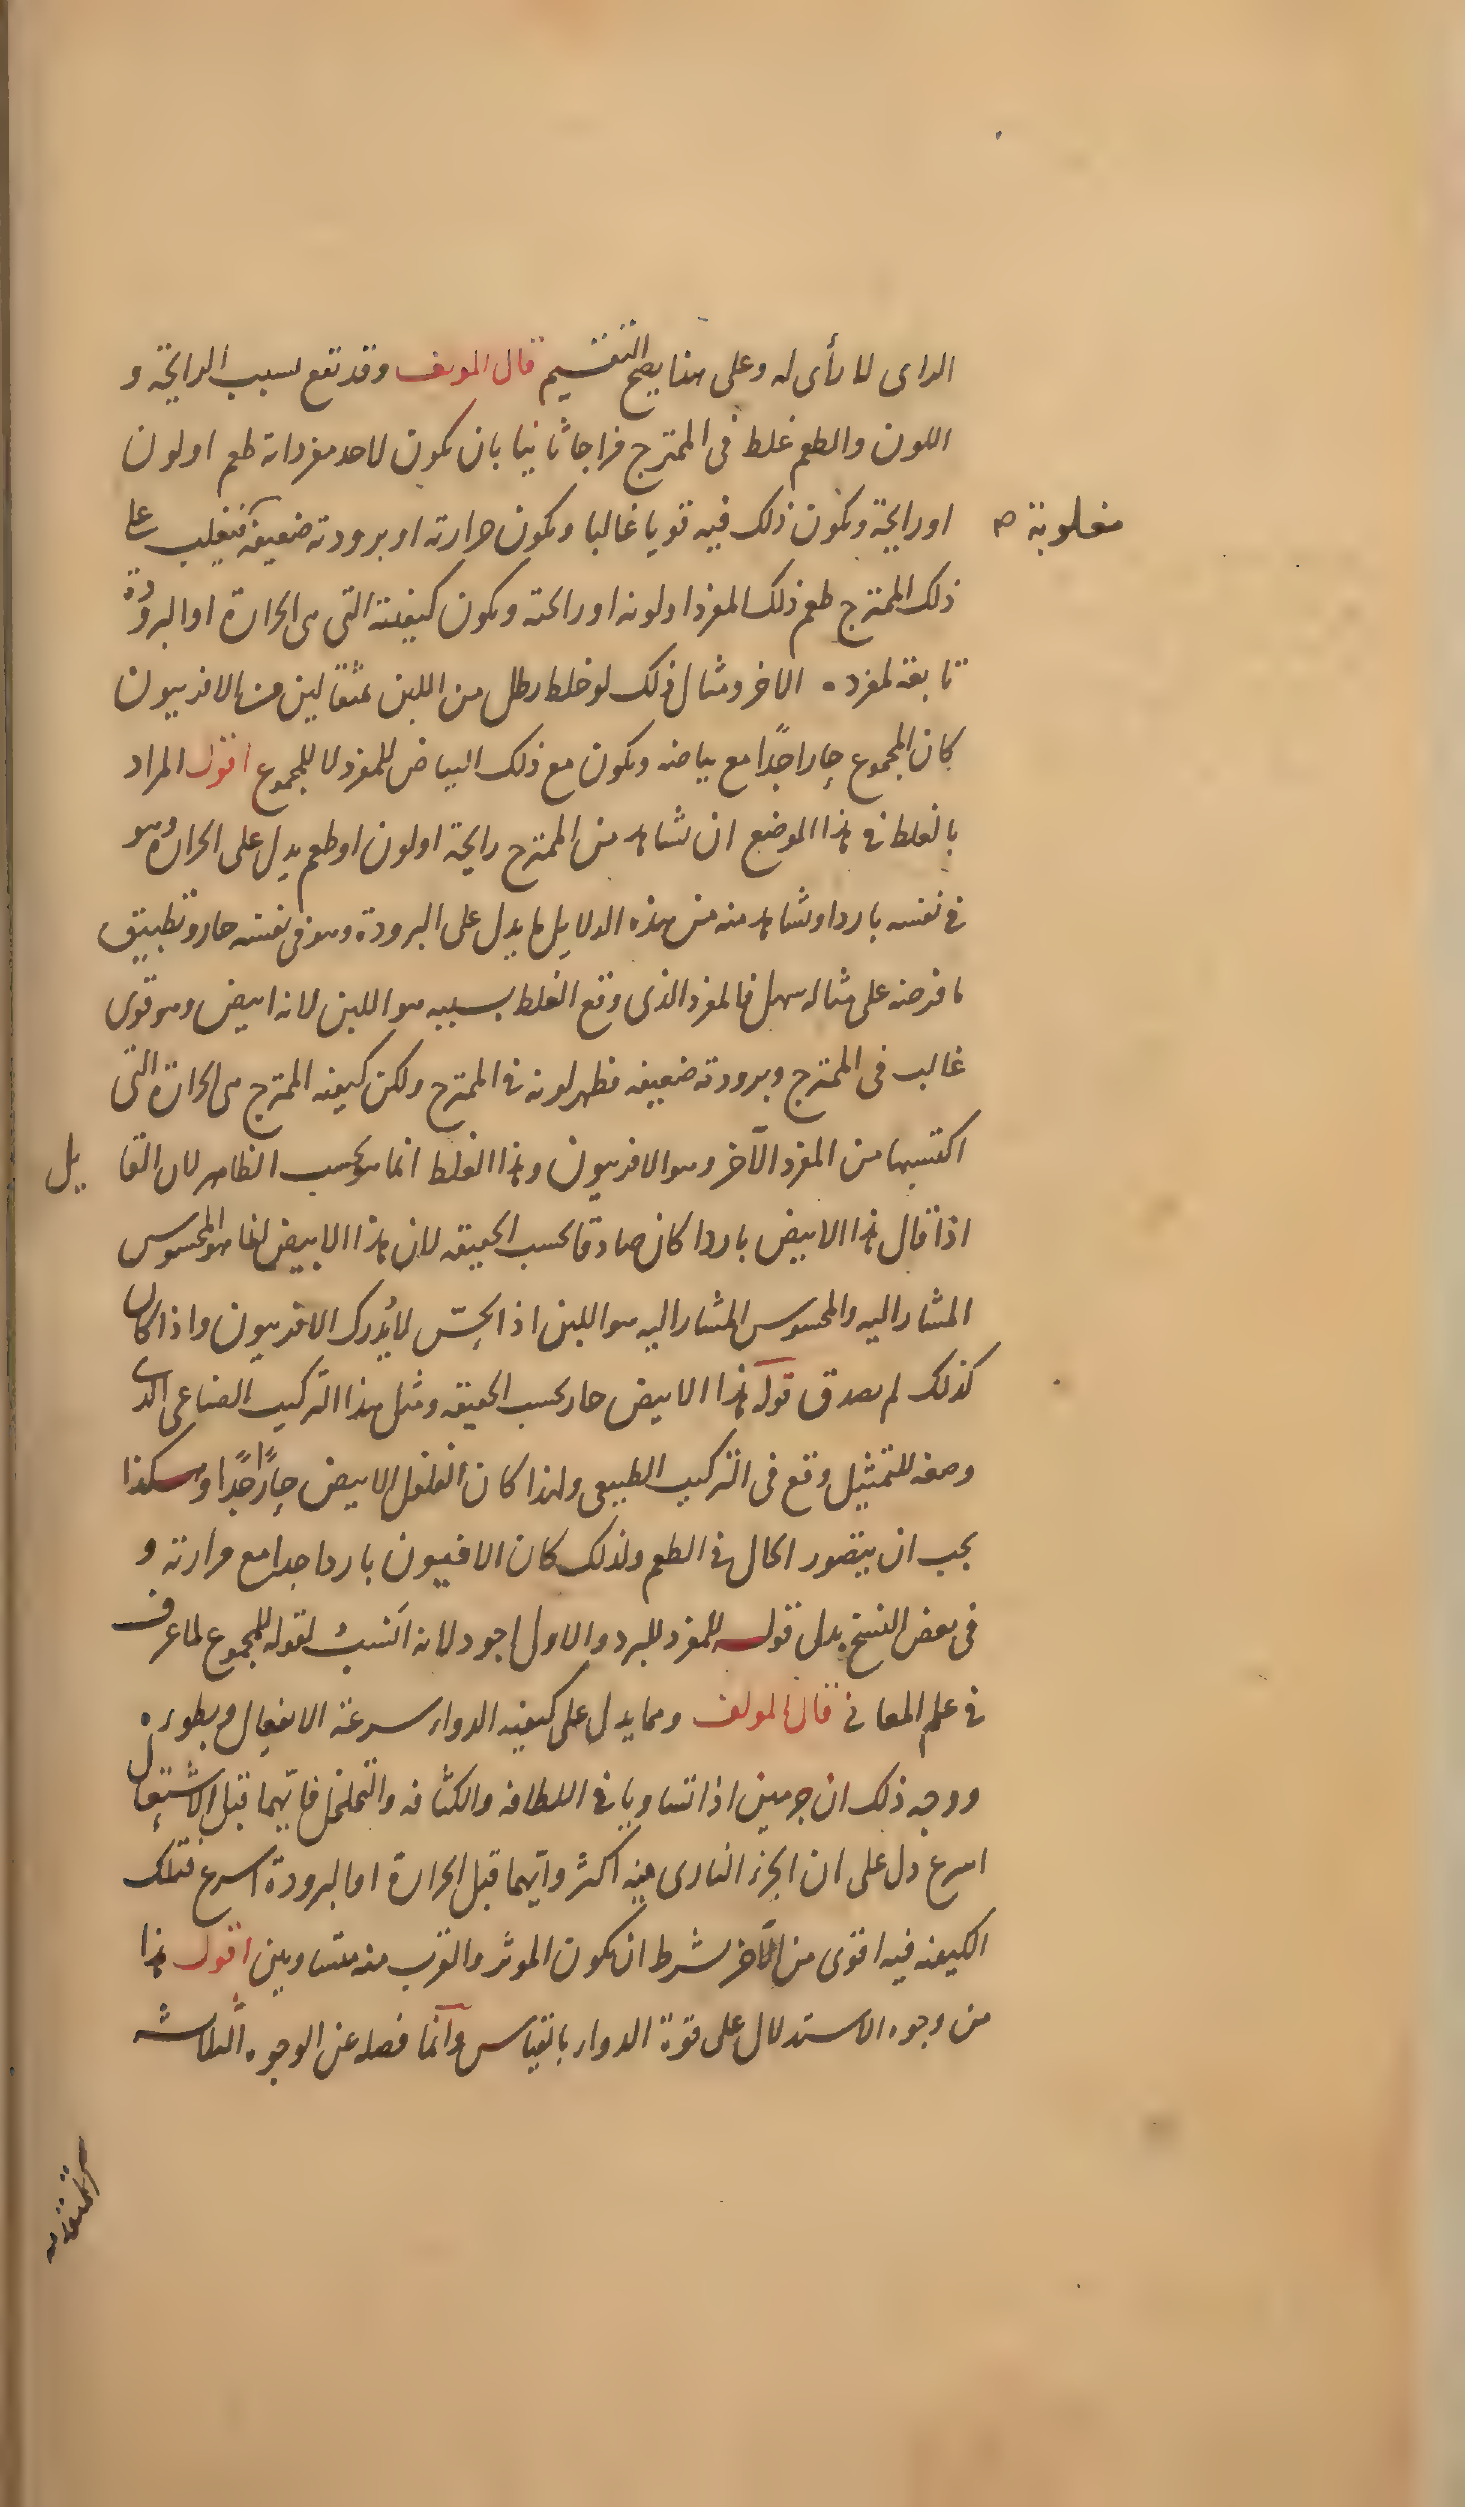 الداى لا رأى له وعلى هذا يصح التقسيم قال المولف وقد تقع بسبب الرايحة و
اللون والطعم غلط فى الممتزج مزاجا ثانيا بان يكون لاحد مفرداته طعم او لون
او رايحة ويكون ذلك فيه قويا غالبا ويكون حرارته او برودته ضعيفة فيغلب على
مغلوبة صح
ذلك الممتزج طعم ذلك المفرد او لونه او رائحته ويكون كيفيته التى هى الحرارة او البرودة
تابعة لمفرده الاخر ومثال ذلك لو خلط رطل من اللبن بمثقالين من الافربيون
كان المجموع حارا جدًا مع بياضه ويكون مع ذلك البياض للمفرد لا للمجموع اقول المراد
بالغلط فى هذا الموضع ان نشاهد من الممتزج رايحة او لون او طعم يدل على الحرارة وهو
فى نفسه بارد او نشاهد منه من هذه الدلايل ما يدل على البرودة وهو فى نفسه حار وتطبيق
ما فرضه على مثاله سهل فالمفرد الذى وقع الغلط بسببه هو اللبن لانه ابيض وهو قوى
غالب فى الممتزج وبرودته ضعيفه فظهر لونه فى الممتزج ولكن كيفيه الممتزج هى الحرارة التى
اكتسبها من المفرد الآخر وهو الافربيون وهذا الغلط انما هو بحسب الظاهر لان القايل
اذا قال هذا الابيض باردا كان صادقا بحسب الحقيقه لان هذا الابيض انما هو المحسوس
المشار اليه والمحسوس المشار اليه هو اللبن اذ الحِسّ لا يُدرك الافربيون واذا كان
كذلك لم يصدق قوله هذا الابيض حار بحسب الحقيقه ومثل هذا التركيب الصناعى الذى
وصفه للتمثيل وقع فى التركيب الطبيعى ولهذا كان الفلفل الابيض حارًا جدًا وهكذا
يجب ان يتصور الحال فى الطعم ولذلك كان الافيون باردا جدا مع مرارته و
فى بعض النسخ بدل قوله للمفرد للبرد والاول اجود لانه اَنسبُ لقوله للمجموع لما عرف
فى علم المعانى قال المولف ومما يدل على كيفيه الدواء سرعة الانفعال وبطوءه
ووجه ذلك ان جرمين اذا تساويا فى اللطافه والكثافه والتخلخل فايّهما قبل الاشتعال
اسرع دل على ان الجزء النارى فيه اكثر وايّهما قبل الحرارة او البرودة اسرع فتلك
الكيفيه فيه اقوى من الآخر بشرط ان يكون الموثر والقرب منه متساويين اقول هذا
من وجوه الاستدلال على قوة الدواء بالقياس وانّما فصله عن الوجوه الثلاثه